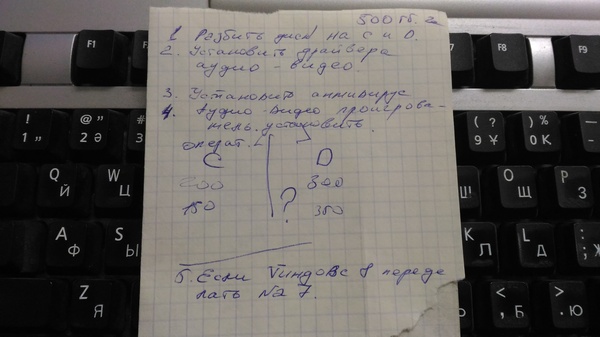 500 гб.
1. Разбить диск на C и D.
2. Установить драйвера
аудио - видео.
3. Установить антивирус
4. Аудио-видео проигрова-
тель установить.
операт.
C D
200 300
150 ? 350
5. Если Виндовс 8 переде
лать на 7.
F1 F2 F7 F8 F9
! 1 "
@ " 2 Ә
( ? 9 ¥
) % 0 К
Q Й
O Щ
P З
A Ф
S Ы
L Д
: ; Ж
Z Я
< , Б
> . Ю